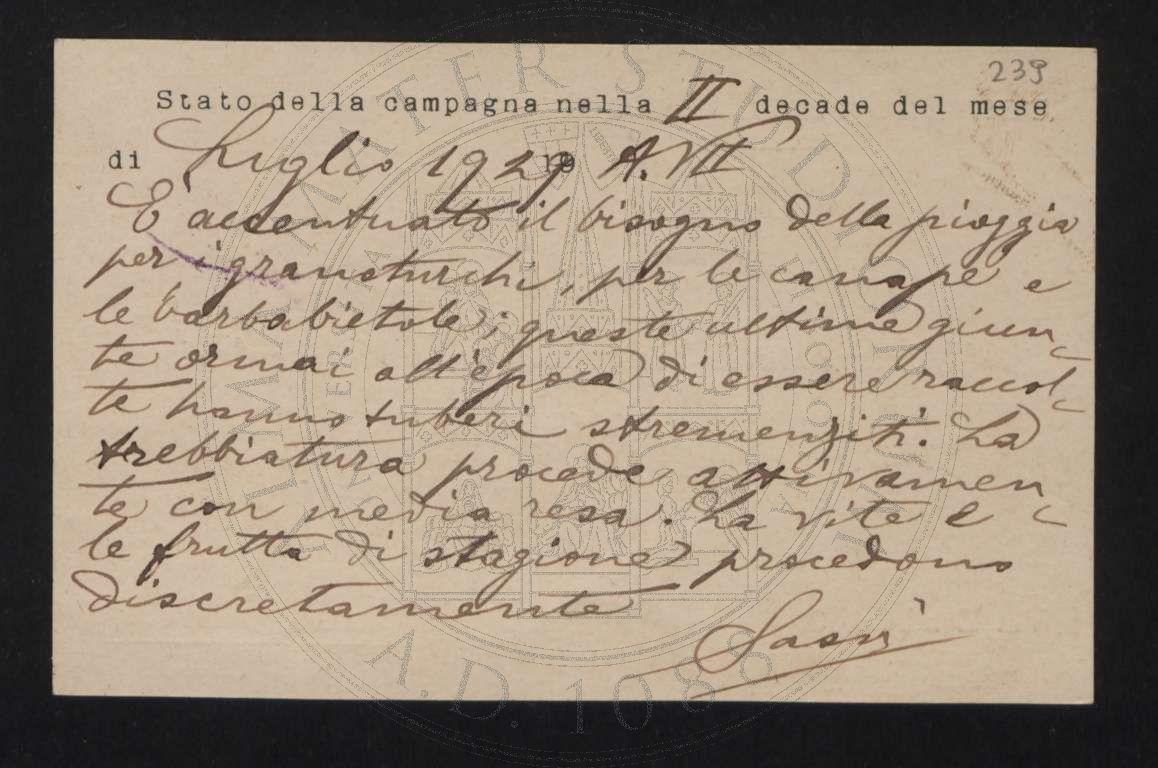 239
Stato della campagna nella II decade del mese
di Luglio 1929 19 A. VII
E' accentuato il bisogno della pioggia
per i granoturchi, per le canape e
le barbabietole; queste ultime giun-
te ormai all'epoca di essere raccol-
te hanno tuberi stremenziti. La
trebbiatura procede attivamen-
te con media resa. La vite e
le frutta di stagione procedono
discretamente
A.D. 1088